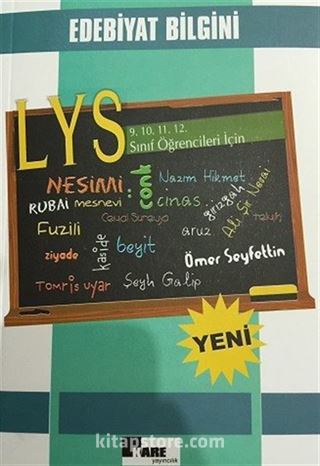 EDEBİYAT BİLGİNİ
LYS
9. 10. 11. 12.
Sınıf Öğrencileri İçin
NESİMİ
cönk
Nazım Hikmet
RUBAİ
mesnevi
cinas
girizgah
Ali Şir Nevai
Cemal Süreya
telmih
Fuzili
kaside
beyit
aruz
ziyade
Ömer Seyfettin
Tomris uyar
Şeyh Galip
YENİ
kitapstore.com
KARE
yayıncılık